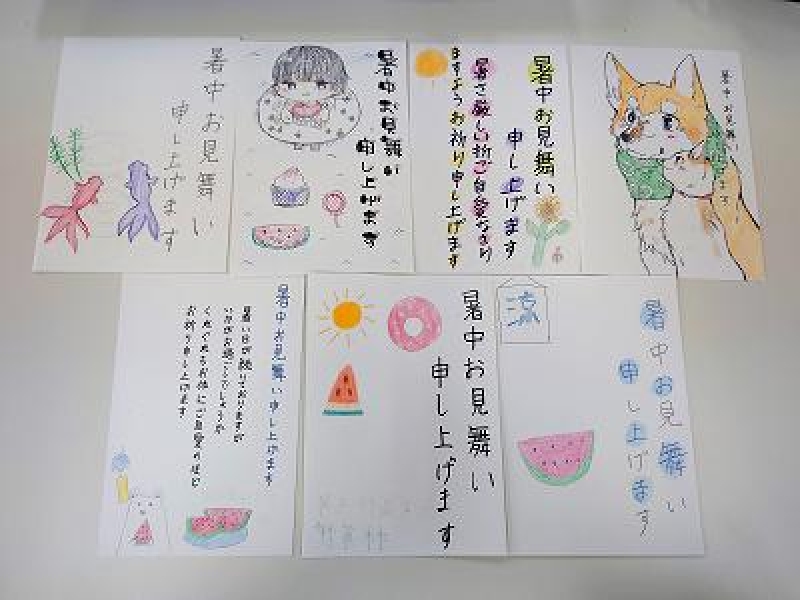 暑中お見舞い
申し上げます
暑中お見舞い
申し上げます
暑中お見舞い
申し上げます
暑さ厳しい折ご自愛なさり
ますようお祈り申し上げます
暑中お見舞い
暑中お見舞い申し上げます
暑い日が続いておりますが
いかがお過ごしでしょうか
くれぐれもお体にご自愛の
お祈り申し上げます
暑中お見舞い
申し上げます
涼
暑中お見舞い
申し上げます